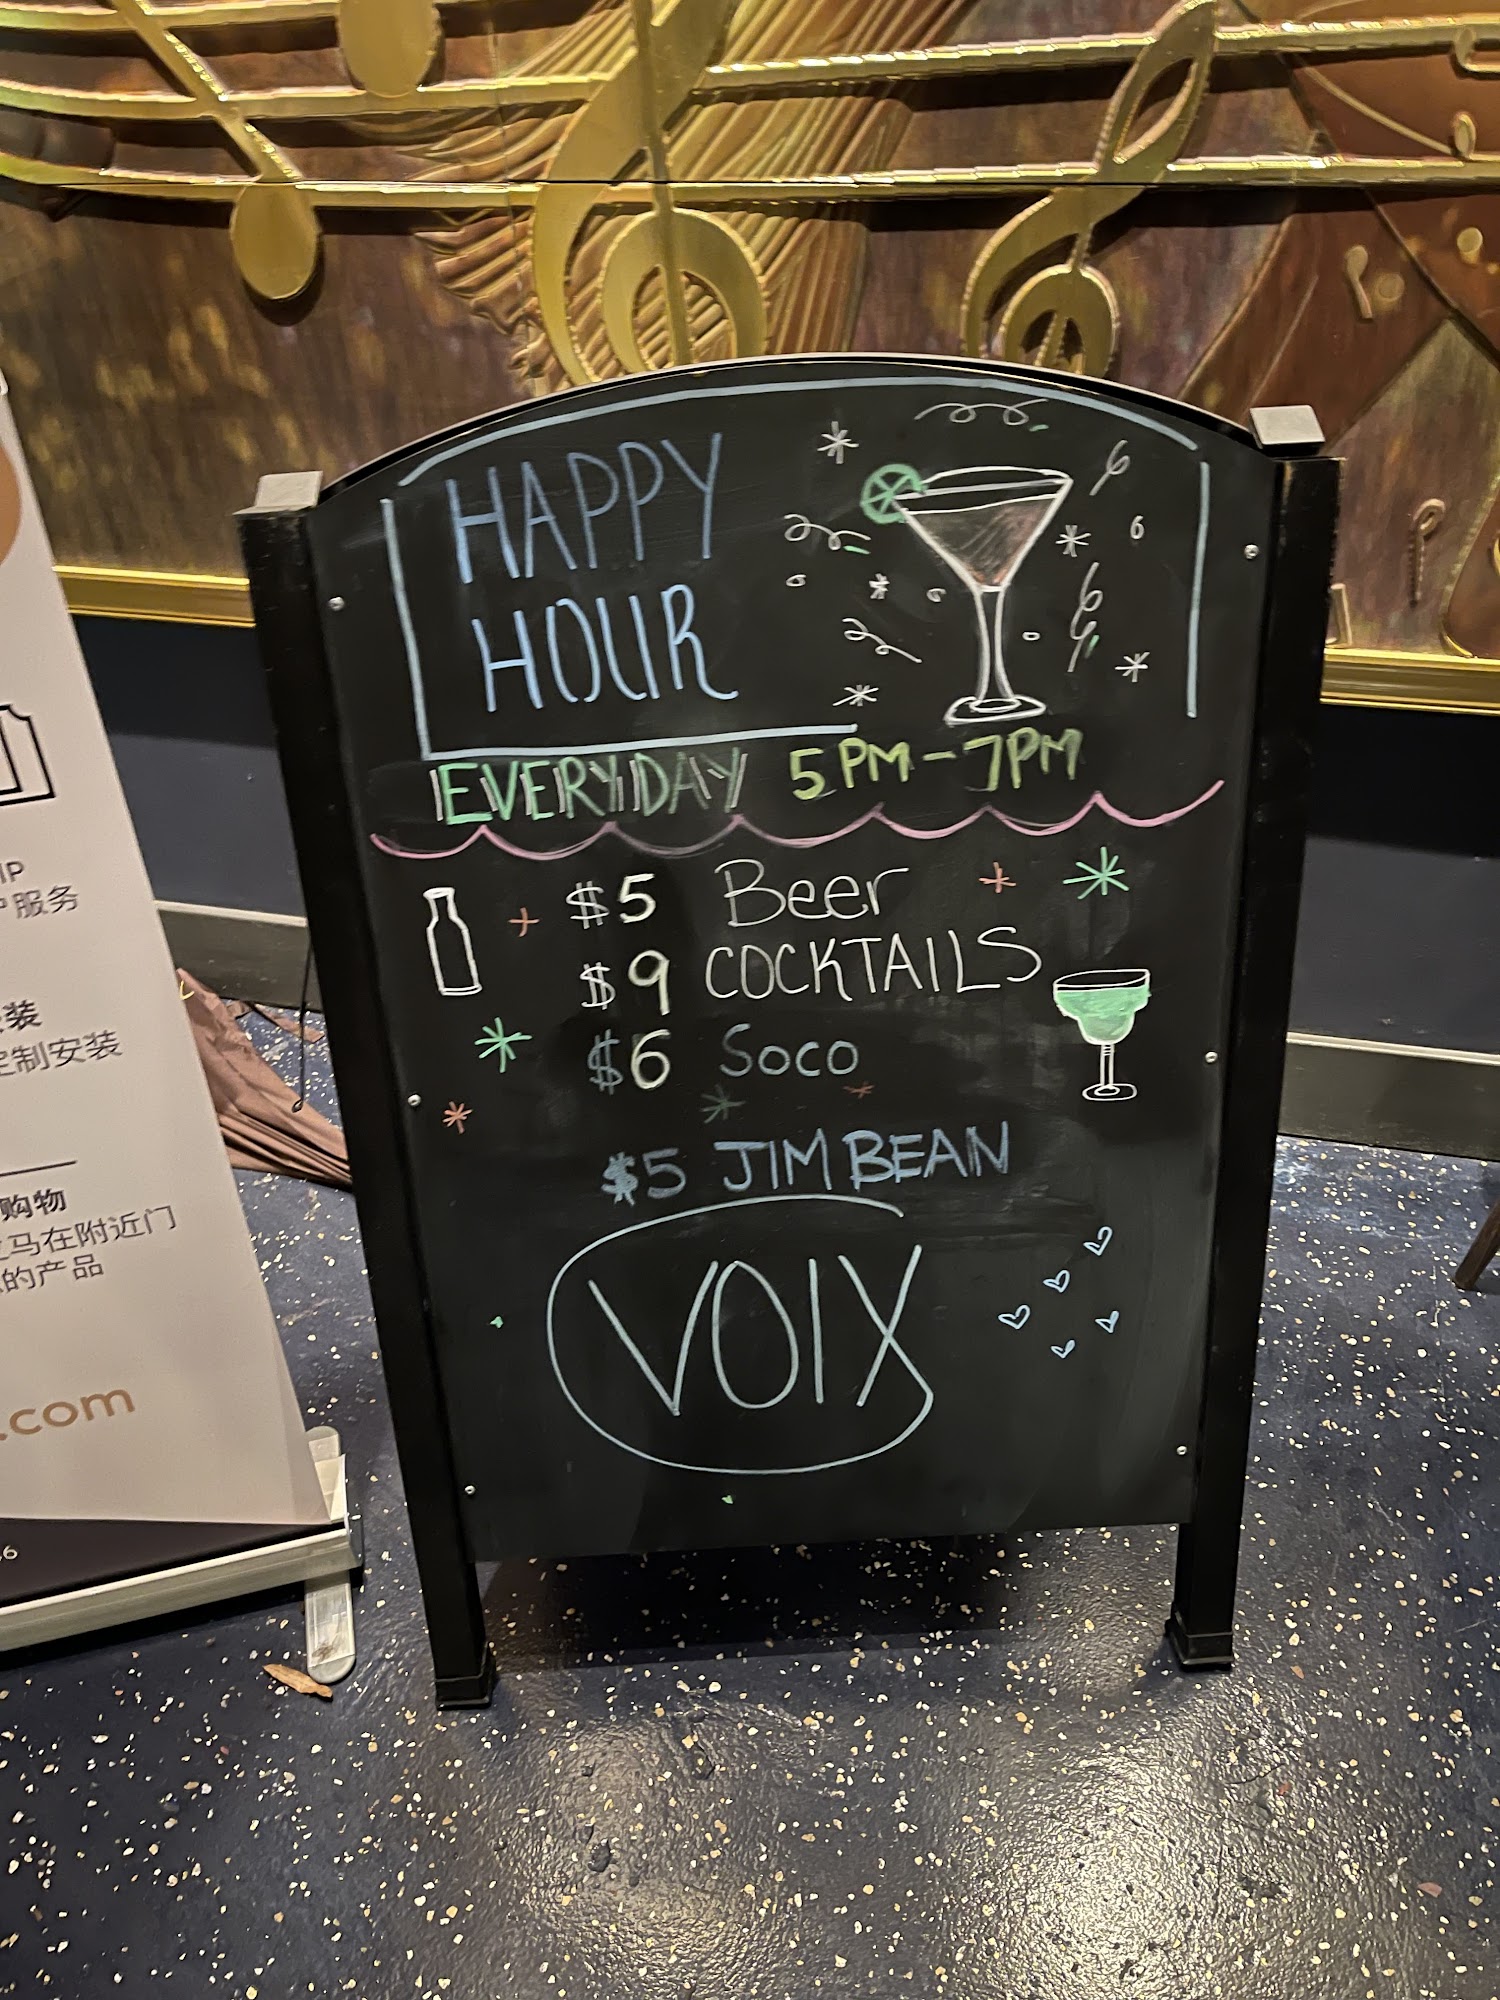 HAPPY
HOUR
EVERYDAY 5PM-7PM
$5 Beer
$9 COCKTAILS
$6 Soco
$5 JIM BEAN
VOIX
服务
定制安装
购物
马在附近门
的产品
.com